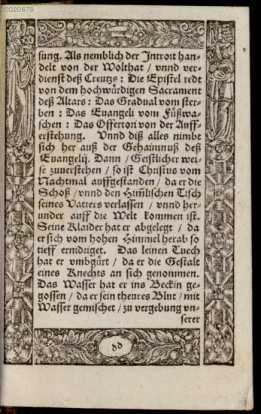 0020679
sung. Als nemblich der Introit han-
delt von der Wolthat / vnnd ver-
dienst deß Creutzs : Die Epistel redt
von dem hochwürdigen Sacrament
deß Altars : Das Gradual vom ster-
ben : Das Euangeli vom Füßwa-
schen : Das Offertori von der Auff-
erstehung. Vnnd deß alles nimbt
sich her auß der Gehaimnuß deß
Euangelij. Dann / Geistlicher wei-
se zuuerstehen / so ist Christus vom
Nachtmal auffgestanden / da er die
Schoß / vnnd den Himlischen Tisch
seines Vatters verlassen / vnnd her-
under auff die Welt kommen ist.
Seine Klaider hat er abgelegt / da
er sich vom hohen Himmel herab so
tieff ernidriget. Das leinen Tuech
hat er vmbgürt / da er die Gestalt
eines Knechts an sich genommen.
Das Wasser hat er ins Beckin ge-
gossen / da er sein theures Blut / mit
Wasser gemischet / zu vergebung vn-
serer